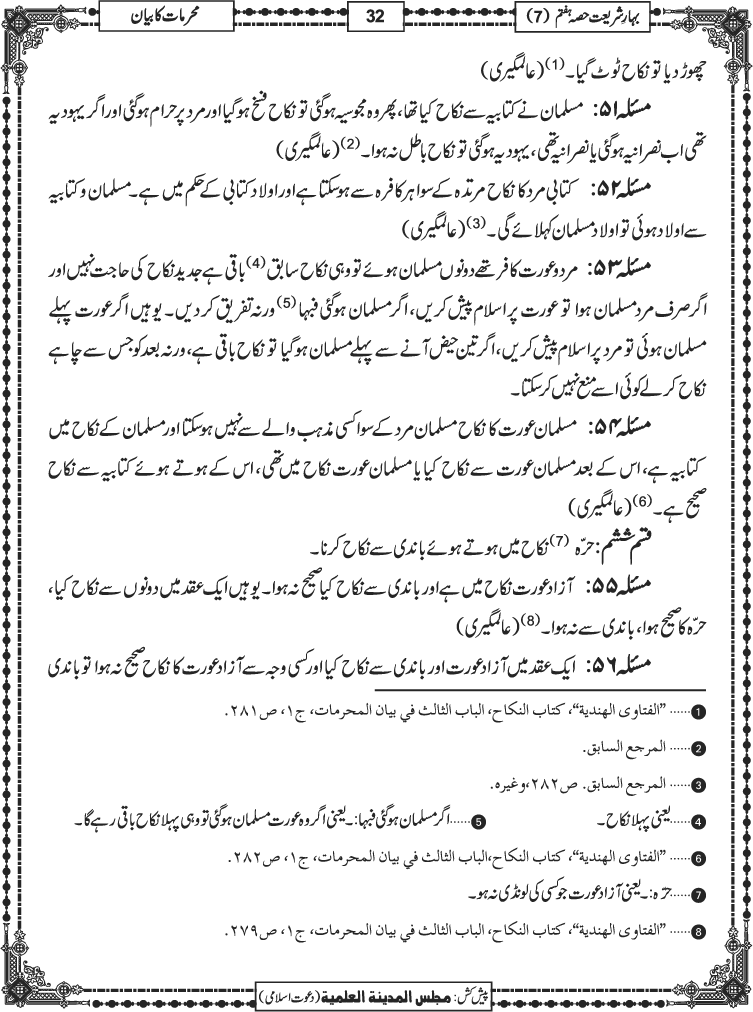 بہارِ شریعت حصہ ہفتم (7)
32
محرمات کا بیان
چھوڑ دیا تو نکاح ٹوٹ گیا۔(1) (عالمگیری)
مسئلہ ۵۱: مسلمان نے کتابیہ سے نکاح کیا تھا، پھر وہ مجوسیہ ہوگئی تو نکاح فسخ ہوگیا اور مرد پر حرام ہوگئی اور اگر یہودیہ
تھی اب نصرانیہ ہوگئی یا نصرانیہ تھی، یہودیہ ہوگئی تو نکاح باطل نہ ہوا۔(2) (عالمگیری)
مسئلہ ۵۲: کتابی مرد کا نکاح مرتدہ کے سوا ہر کافرہ سے ہوسکتا ہے اور اولاد کتابی کے حکم میں ہے۔ مسلمان و کتابیہ
سے اولاد ہوئی تو اولاد مسلمان کہلائے گی۔(3) (عالمگیری)
مسئلہ ۵۳: مرد و عورت کافر تھے دونوں مسلمان ہوئے تو وہی نکاح سابق(4) باقی ہے جدید نکاح کی حاجت نہیں اور
اگر صرف مرد مسلمان ہوا تو عورت پر اسلام پیش کریں، اگر مسلمان ہوگئی فبہا(5) ورنہ تفریق کر دیں۔ یوہیں اگر عورت پہلے
مسلمان ہوئی تو مرد پر اسلام پیش کریں، اگر تین حیض آنے سے پہلے مسلمان ہوگیا تو نکاح باقی ہے، ورنہ بعد کو جس سے چاہے
نکاح کرلے کوئی اسے منع نہیں کرسکتا۔
مسئلہ ۵۴: مسلمان عورت کا نکاح مسلمان مرد کے سوا کسی مذہب والے سے نہیں ہوسکتا اور مسلمان کے نکاح میں
کتابیہ ہے، اس کے بعد مسلمان عورت سے نکاح کیا یا مسلمان عورت نکاح میں تھی، اس کے ہوتے ہوئے کتابیہ سے نکاح
صحیح ہے۔(6) (عالمگیری)
قسم ششم: حرّہ(7) نکاح میں ہوتے ہوئے باندی سے نکاح کرنا۔
مسئلہ ۵۵: آزاد عورت نکاح میں ہے اور باندی سے نکاح کیا صحیح نہ ہوا۔ یوہیں ایک عقد میں دونوں سے نکاح کیا،
حرّہ کا صحیح ہوا، باندی سے نہ ہوا۔(8) (عالمگیری)
مسئلہ ۵۶: ایک عقد میں آزاد عورت اور باندی سے نکاح کیا اور کسی وجہ سے آزاد عورت کا نکاح صحیح نہ ہوا تو باندی
1...... ”الفتاوی الھندیة“، کتاب النکاح، الباب الثالث في بیان المحرمات، ج۱، ص۲۸۱.
2...... المرجع السابق.
3...... المرجع السابق. ص۲۸۲،وغیره.
4...... یعنی پہلا نکاح۔ 5...... اگر مسلمان ہوگئی فبہا:۔ یعنی اگر وہ عورت مسلمان ہوگئی تو وہی پہلا نکاح باقی رہے گا۔
6...... ”الفتاوی الھندیة“، کتاب النکاح،الباب الثالث في بیان المحرمات، ج۱، ص۲۸۲.
7...... حرّہ:۔ یعنی آزاد عورت جو کسی کی لونڈی نہ ہو۔
8...... ”الفتاوی الھندیة“، کتاب النکاح، الباب الثالث في بیان المحرمات، ج۱، ص۲۷۹.
پیش کش: مجلس المدينة العلمية (دعوت اسلامی)